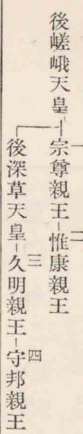 後嵯峨天皇
一
宗尊親王
二
惟康親王
後深草天皇
三
久明親王
四
守邦親王